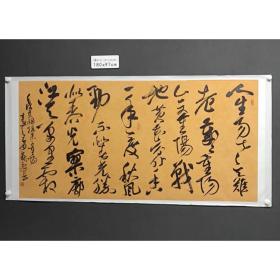 180x97cm
人生易老天難
老歲歲重陽
今又重陽戰
地黄花分外香
一年一度秋風
勁不似春光勝
似春光寥廓
江天萬里霜